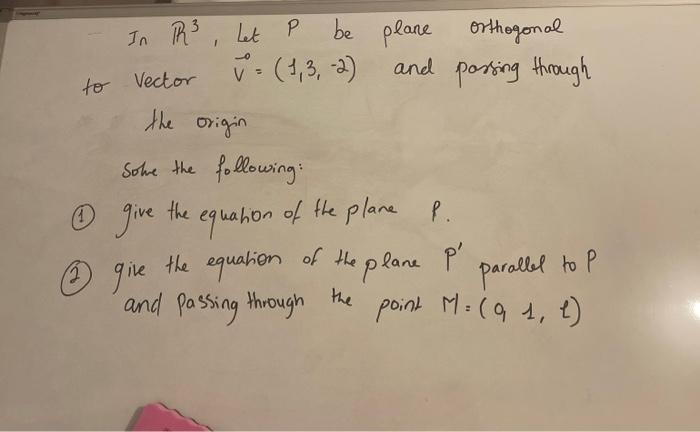 In ℝ³, Let P be plane orthogonal
to Vector v⃗ = (1,3,-2) and passing through
the origin
Solve the following:
① give the equation of the plane P.
② give the equation of the plane P' parallel to P
and passing through the point M = (0, 1, 1)